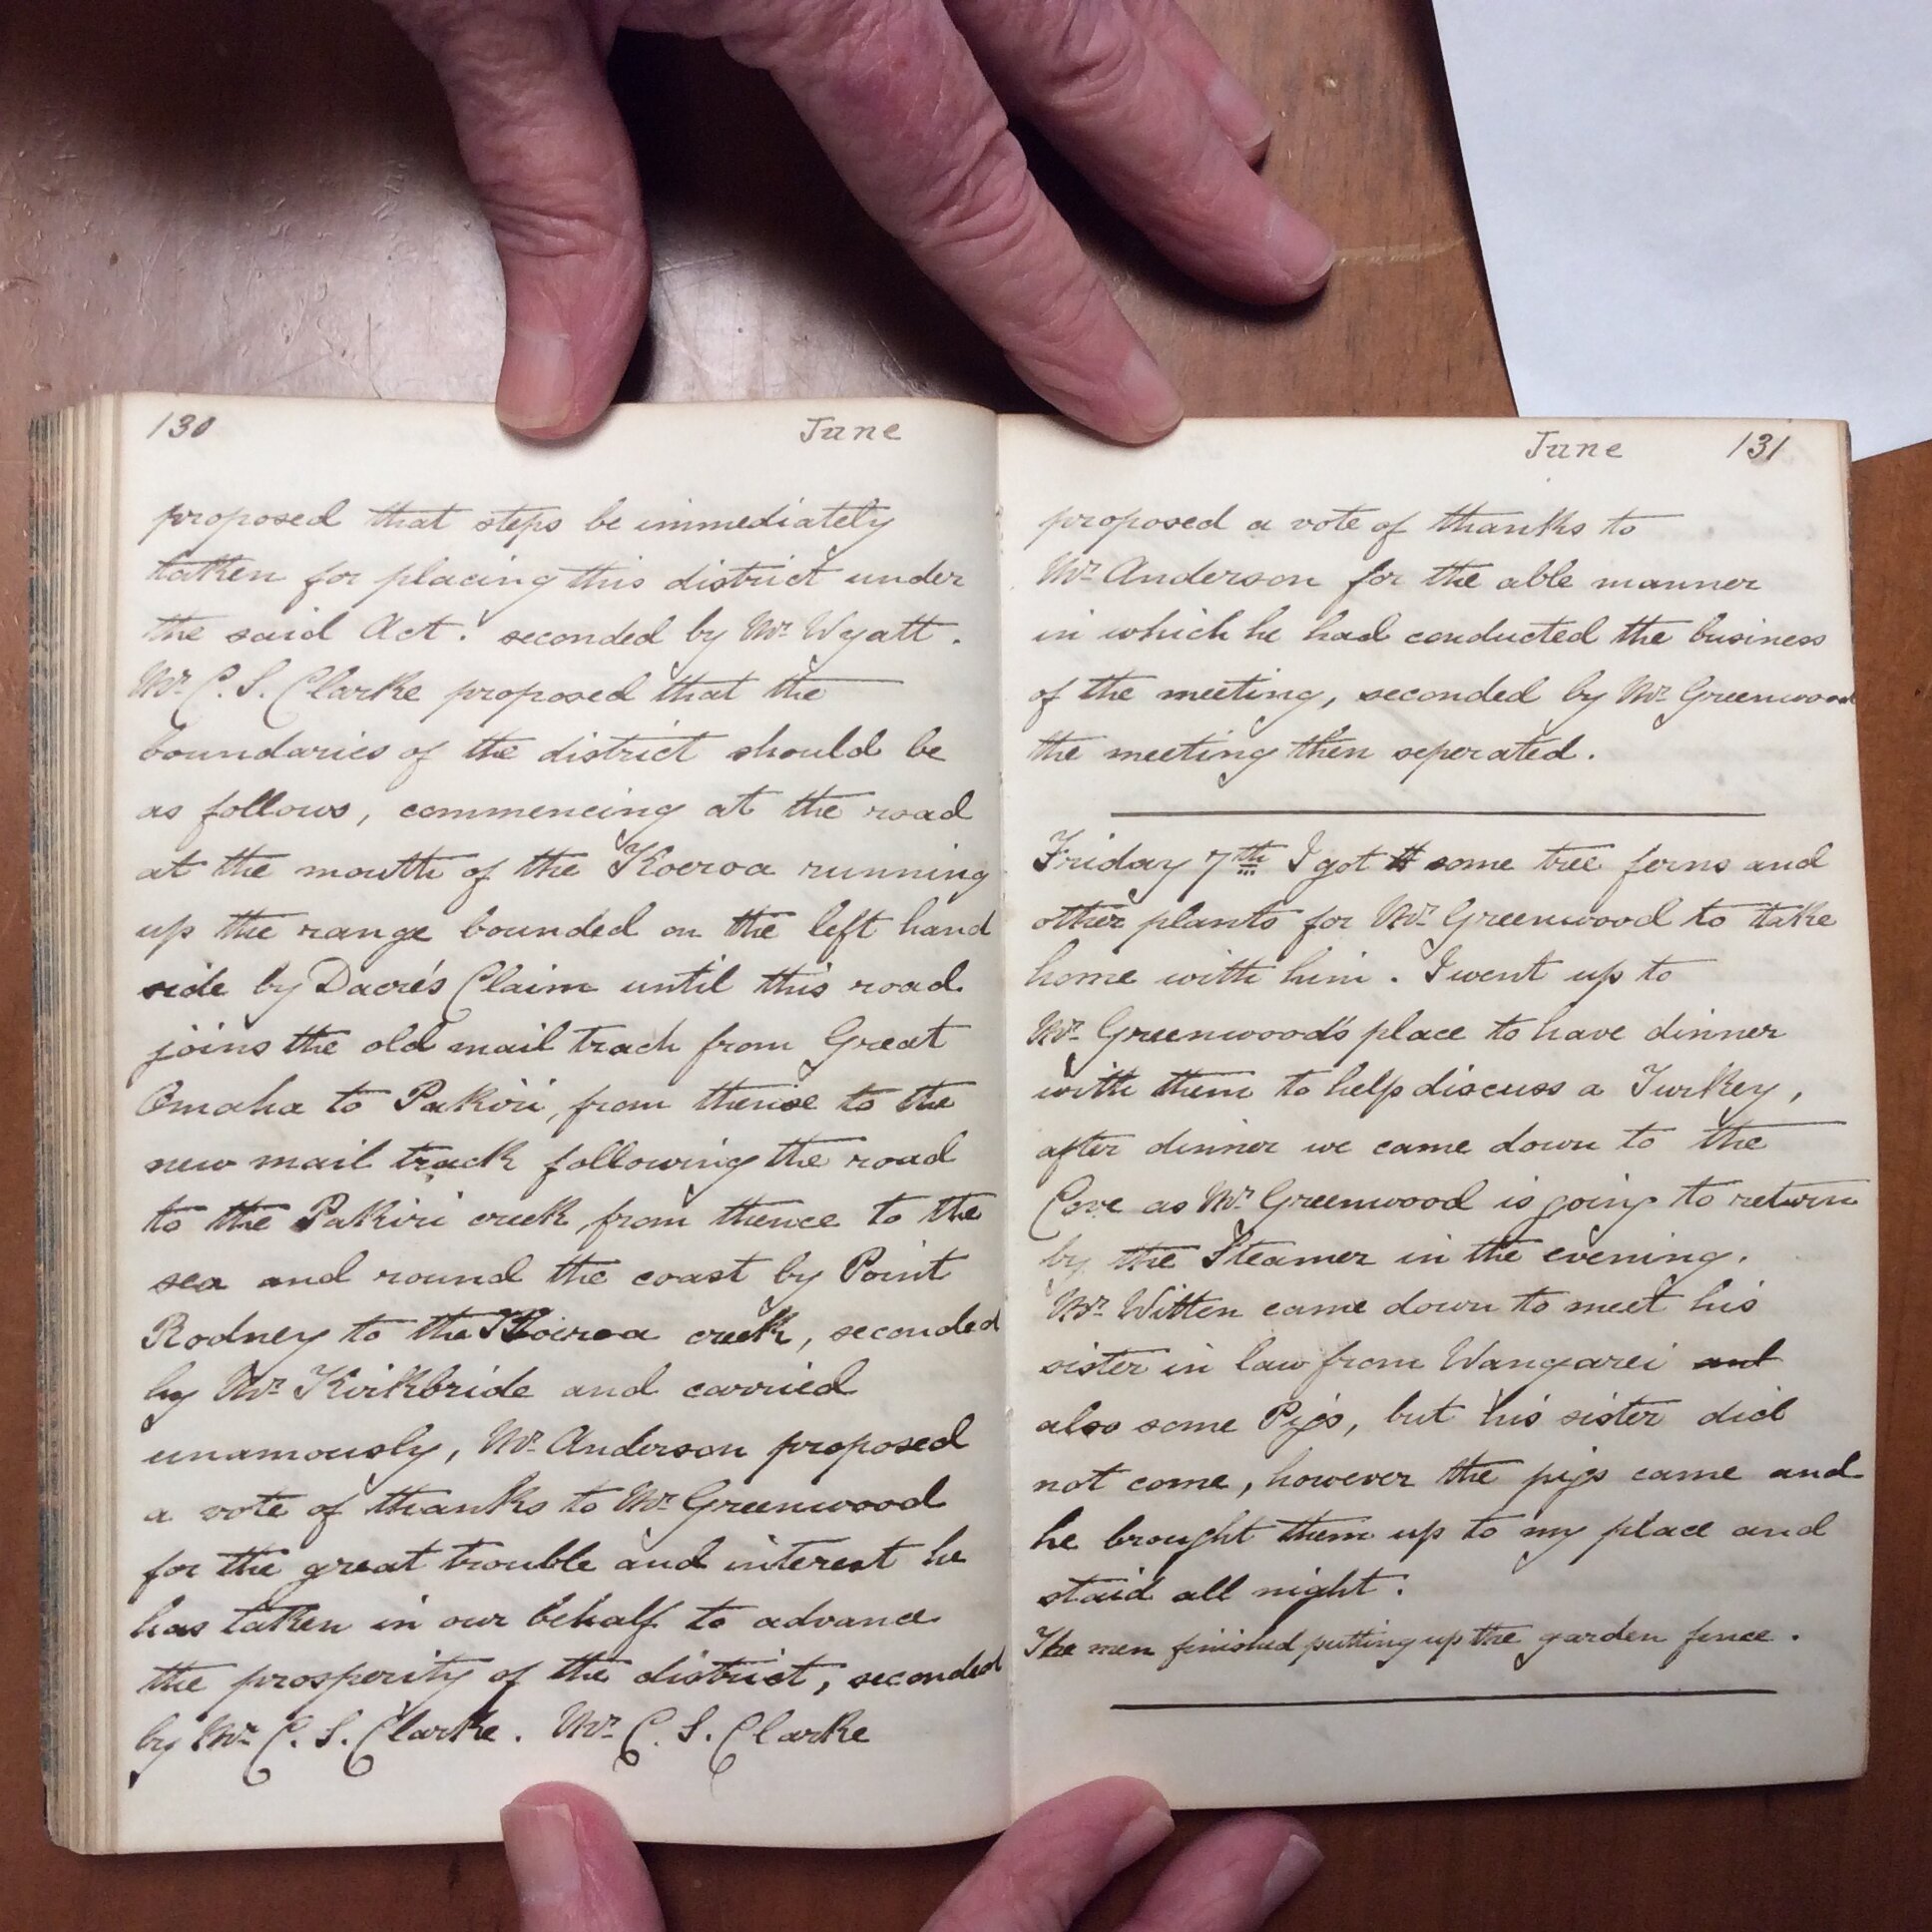 130 June
proposed that steps be immediately
taken for placing this district under
the said Act. seconded by Mr. Wyatt.
Mr. C. S. Clarke proposed that the
boundaries of the district should be
as follows, commencing at the road
at the mouth of the Koeroa running
up the range bounded on the left hand
side by Dacre's Claim until this road
joins the old mail track from Great
Omaha to Pakiri, from thence to the
new mail track following the road
to the Pakiri creek, from thence to the
sea and round the coast by Point
Rodney to the creek, seconded
by Mr. Kirkbride and carried
unamously, Mr. Anderson proposed
a vote of thanks to Mr. Greenwood
for the great trouble and interest he
has taken in our behalf to advance
the prosperity of the district, seconded
by Mr. C. S. Clarke. Mr. C. S. Clarke
June 131
proposed a vote of thanks to
Mr. Anderson for the able manner
in which he had conducted the business
of the meeting, seconded by Mr. Greenwood
the meeting then seperated.
Friday 7th I got some tree ferns and
other plants for Mr. Greenwood to take
home with him. I went up to
Mr. Greenwood's place to have dinner
with them to help discuss a Turkey,
after dinner we came down to the
Cove as Mr. Greenwood is going to return
by the Steamer in the evening.
Mr. Witten came down to meet his
sister in law from Wangarei and
also some Pigs, but his sister did
not come, however the pigs came and
he brought them up to my place and
staid all night.
The men finished putting up the garden fence.